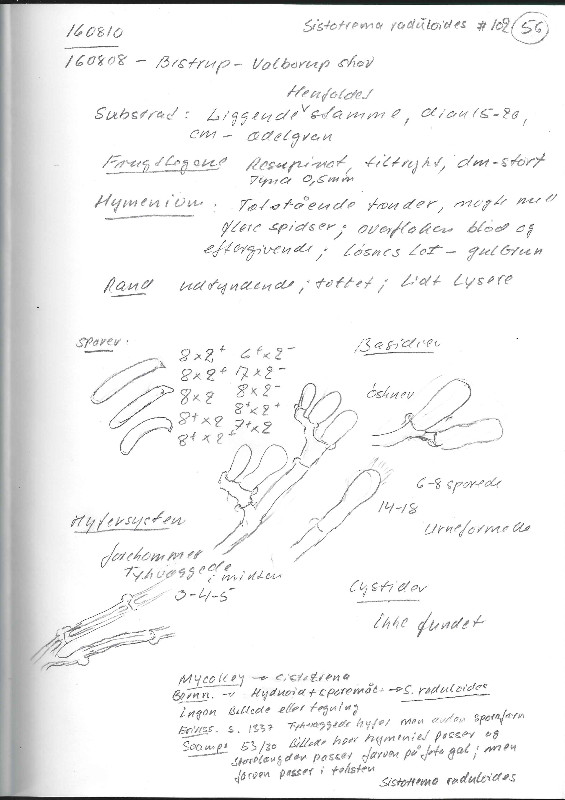 Sistotrema raduloides # 102 56
160810
160808 - Bistrup - Valborup skov
Henfaldet
Substrat: Liggende stamme, diam 15-20,
cm - ædelgran
Frugtlegeme Resupinat, tiltrykt, dm-stort
Tyna 0,5mm
Hymenium. Tætstående tænder, nogle m
flere spidser; overfladen blød og
eftergivende; løsnes let - gulbrun
Rand udtyndende; tottet; lidt lysere
Sporer.
8x2⁺ 6⁺x2⁻
8x2⁺ 7x2⁻
8x2 8x2⁻
8⁺x2 8⁺x2⁺
8⁺x2⁺ 7⁺x2
Basidier
øskner
6-8 sporede
14-18
Urneformede
Hyfersystem
forekommer
Tykvæggede
i midten
3-4-5
Cystider
Ikke fundet
Mycokey → cistotrena
Bernn. → Hydnoid + sporemål → S. raduloides
Ingen Billede eller tegning
Erikss. s. 1337 Tykvæggede hyfer men anden sporeform
Svampe 53/30 Billede hvor hymeniet passer og
sporelængder passer farven på foto gal; men
farven passer i teksten
Sistotrema raduloides